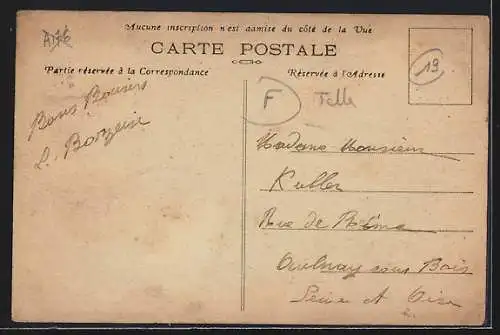 Aucune inscription n'est admise du côté de la Vue
CARTE POSTALE
Partie réservée à la Correspondance
Réservée à l'Adresse
19
F
Bons Baisers
L.
Madame Monsieur
Kubler
Rue de
Aulnay sous Bois
Seine et Oise